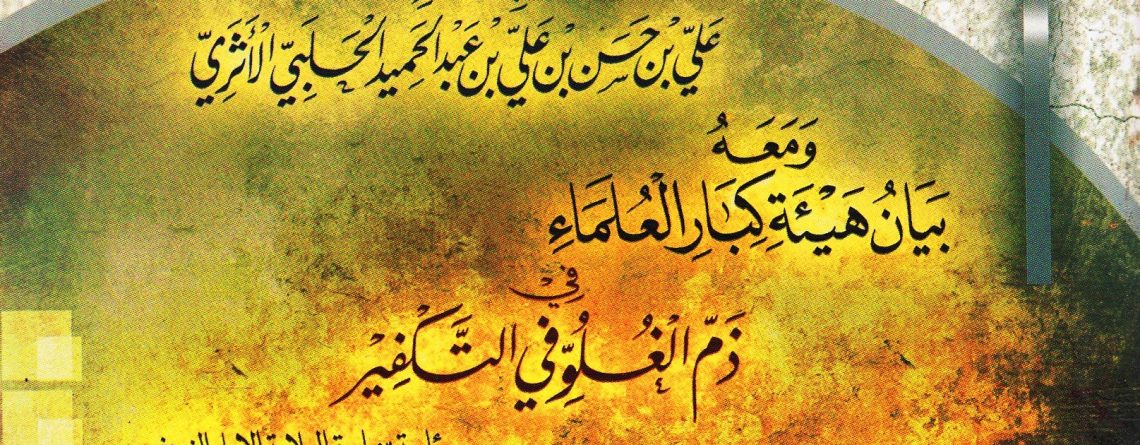 عَلِيّ بْن حَسَن بْن عَلِيّ بْن عَبْد الحَمِيد الحَلَبِيّ الأَثَرِيّ
وَمَعَهُ
بَيَانُ هَيْئَةِ كِبَارِ الْعُلَمَاءِ
فِيْ
ذَمّ الْغُلُوِّ فِي التَّكْفِيْرِ